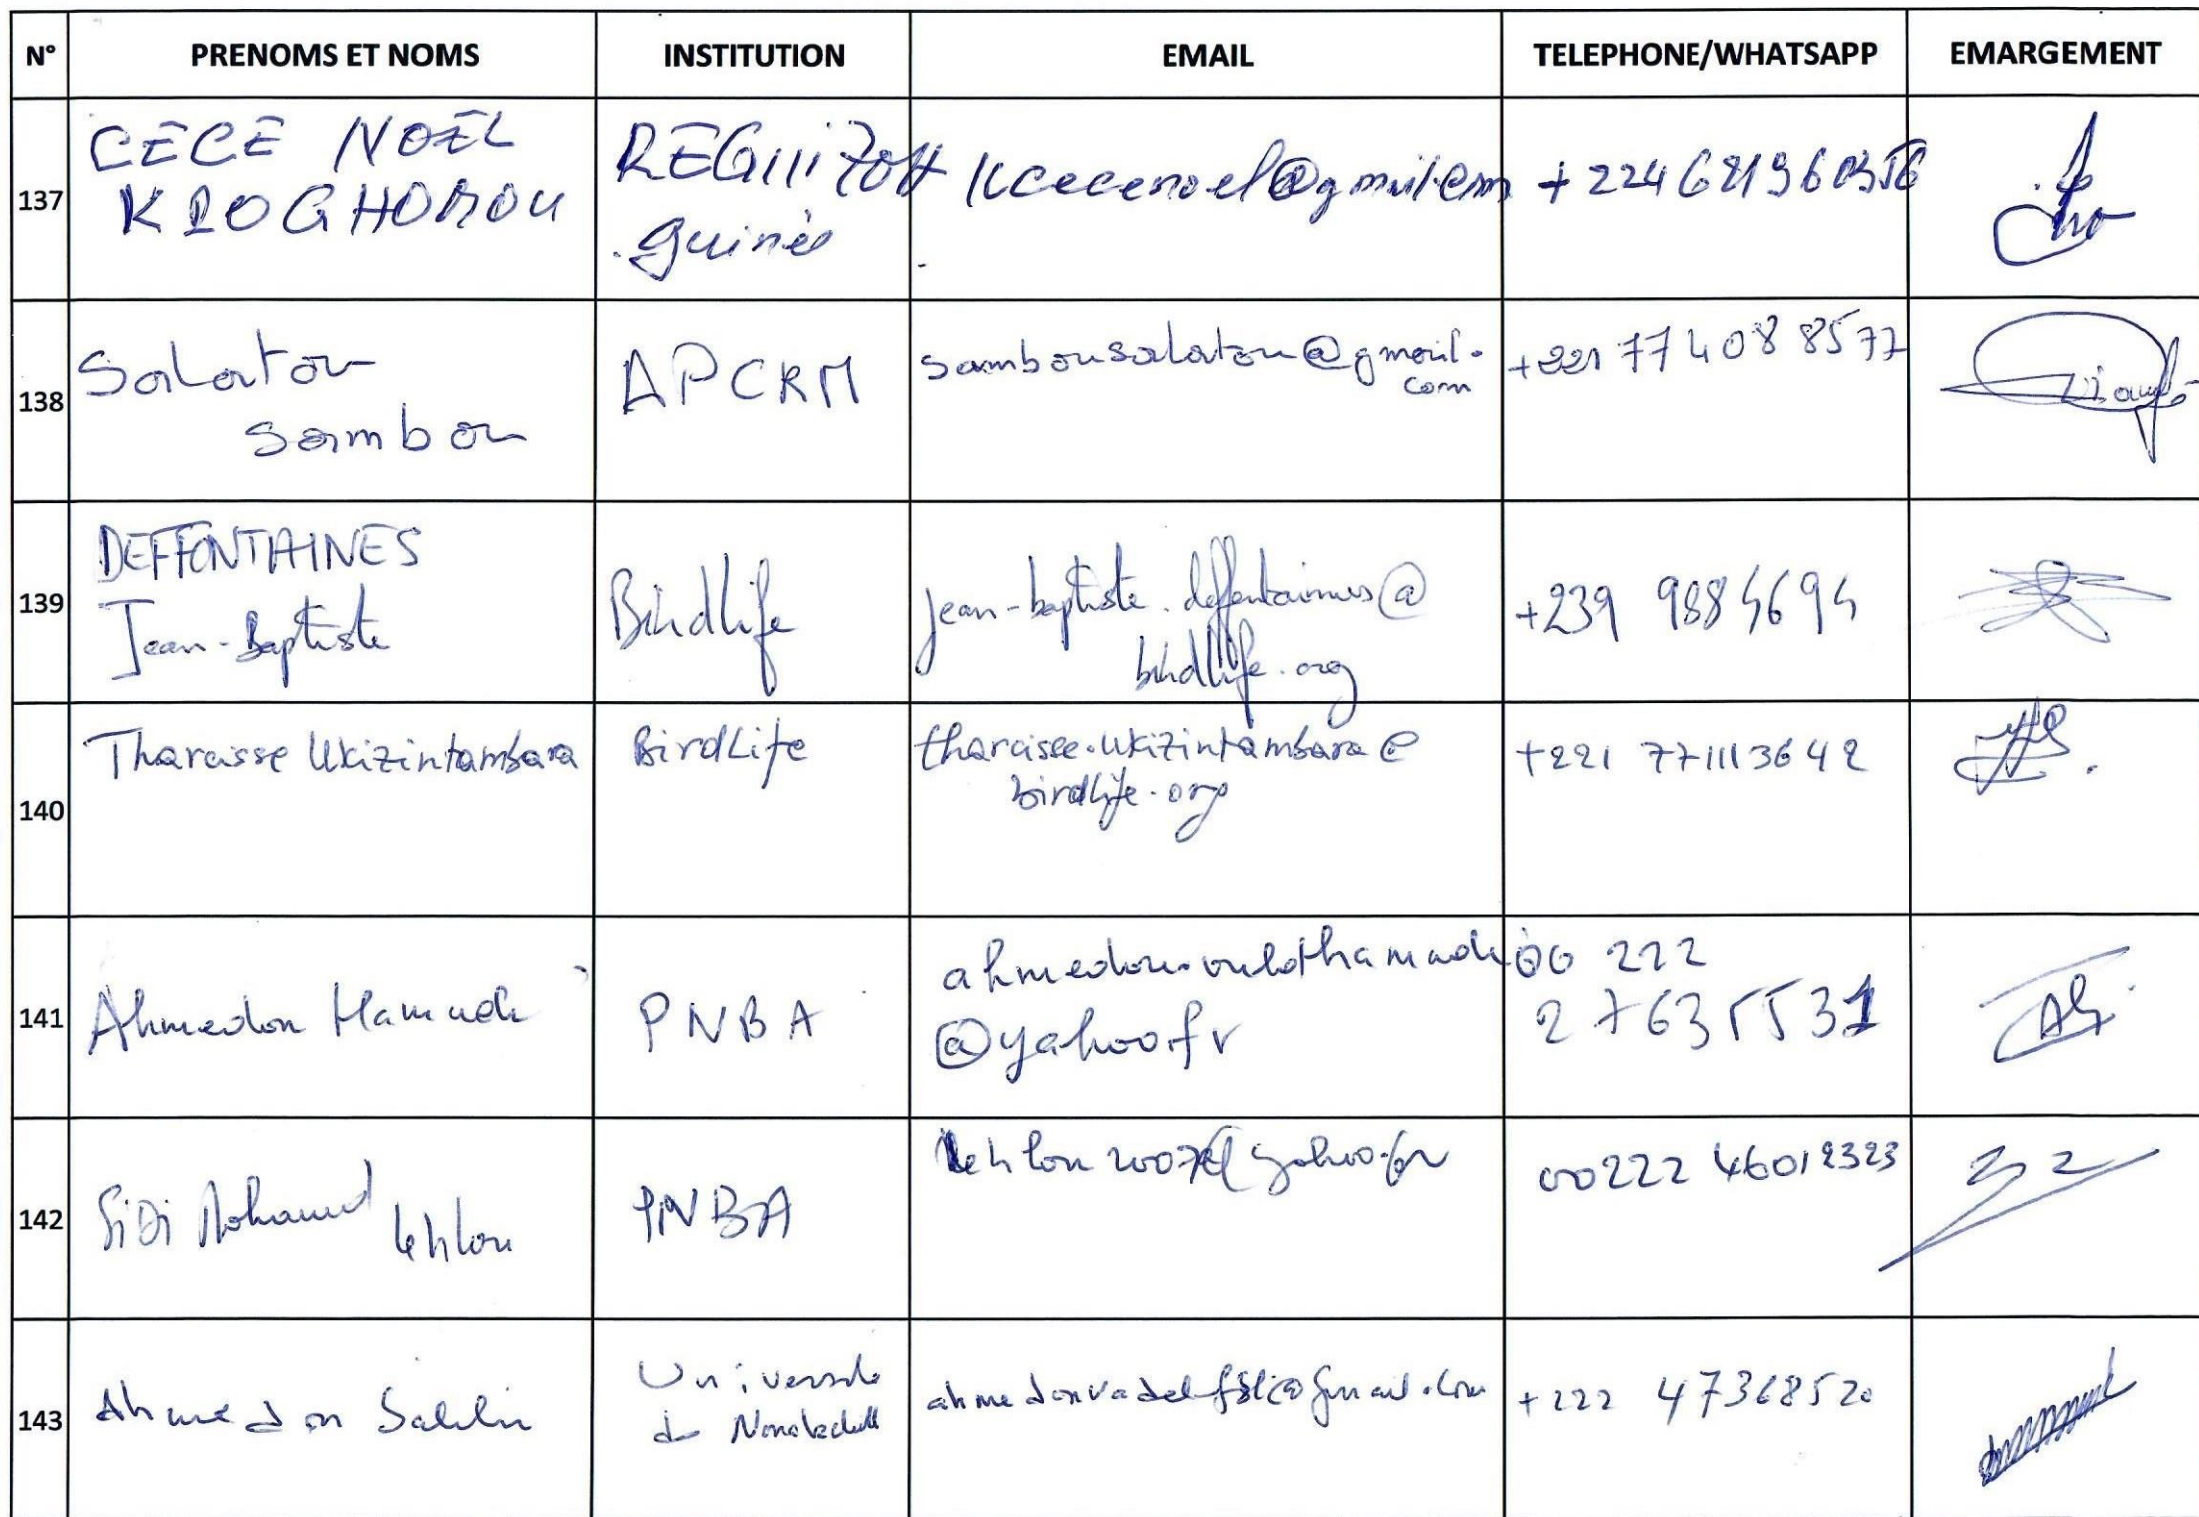 N° PRENOMS ET NOMS INSTITUTION EMAIL TELEPHONE/WHATSAPP EMARGEMENT
137
CECE NOEL
KROGHOMOU
Guinée
kcecenoel@gmail.com
138
Salatou
Sambou
APCRM
sambousalatou@gmail.
com
+221 77 408 8577
139
DEFFONTAINES
Jean-Baptiste
Birdlife
jean-baptiste.deffontaines@
birdlife.org
+239 9884694
140
Tharcisse Ukizintambara
BirdLife
tharcisse.ukizintambara@
birdlife.org
+221 771113642
141
Ahmedou Hamadi
PNBA
ahmedou.ouldhamadi
@yahoo.fr
00 222
27635531
142
Sidi Mohamed Lehlou
PNBA
lehlou2007@yahoo.fr
00222 46012323
143
Ahmedou Salihi
Université
de Nouakchott
+222 47368520